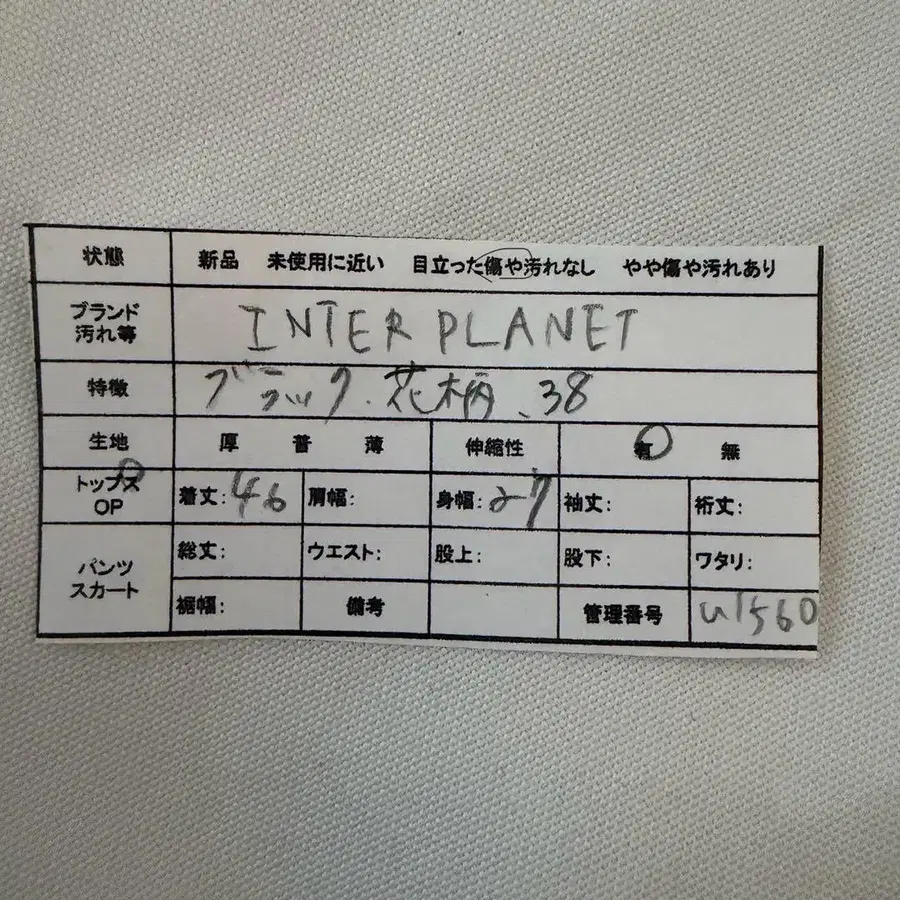 状態 新品 未使用に近い 目立った傷や汚れなし やや傷や汚れあり
ブランド 汚れ等 INTER PLANET
特徴 ブラック、花柄、38
生地 厚 普 薄 伸縮性 有 無
トップス OP 着丈:46 肩幅: 身幅:27 袖丈: 裄丈:
パンツ スカート 総丈: ウエスト: 股上: 股下: ワタリ:
裾幅: 備考 管理番号 u1560